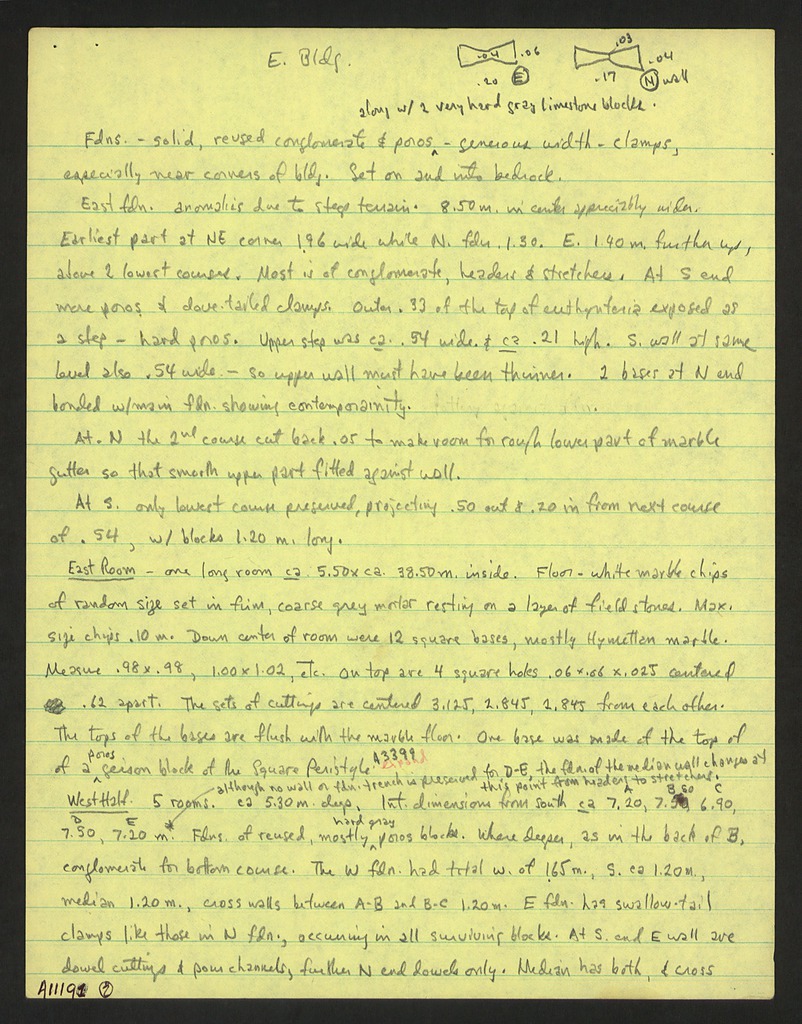 E. Bldg.
.04 .06 .03 .04
.20 E .17 N wall
along w/ 2 very hard gray limestone blocks.
Fdns. - solid, reused conglomerate & poros ^ - generous width - clamps,
especially near corners of bldg. Set on and into bedrock.
East fdn. anomalies due to steep terrain. 8.50 m. in center appreciably wider.
Earliest part at NE corner 1.96 wide while N. fdn. 1.30. E. 1.40 m. further up,
above 2 lowest courses. Most is of conglomerate, headers & stretchers. At S end
more poros & dove-tailed clamps. Outer .33 of the top of euthynteria exposed as
a step - hard poros. Upper step was ca. .54 wide & ca .21 high. S. wall at same
level also .54 wide - so upper wall must have been thinner. 2 bases at N end
bonded w/main fdn. showing contemporainity.
At N the 2nd course cut back .05 to make room for rough lower part of marble
gutter so that smooth upper part fitted against wall.
At S. only lowest course preserved, projecting .50 out & .20 in from next course
of .54, w/ blocks 1.20 m. long.
East Room - one long room ca 5.50 x ca. 38.50 m. inside. Floor - white marble chips
of random size set in firm, coarse grey mortar resting on a layer of field stones. Max.
size chips .10 m. Down center of room were 12 square bases, mostly Hymettian marble.
Measure .98 x .98, 1.00 x 1.02, etc. On top are 4 square holes .06 x .06 x .025 centered
.62 apart. The sets of cuttings are centered 3.125, 2.845, 2.845 from each other.
The tops of the bases are flush with the marble floor. One base was made of the top of
of a ^ poros geison block of the Square Peristyle A3399
although no wall or fdn. trench is preserved for D-E, the fdn. of the median wall changes at
this point from headers to stretchers.
West Half. 5 rooms. ca 5.30 m. deep, Int. dimensions from South ca A 7.20, B 7.50, C 6.90,
D 7.50, E 7.20 m.* Fdns. of reused, mostly ^ hard gray poros blocks. Where deeper, as in the back of B,
conglomerate for bottom course. The W fdn. had total w. of 1.65 m., S. ca 1.20 m.,
median 1.20 m., cross walls between A-B and B-C 1.20 m. E fdn. has swallow-tail
clamps like those in N fdn., occurring in all surviving blocks. At S. end E wall are
dowel cuttings & pour channels, further N end dowels only. Median has both, & cross
A11191 2